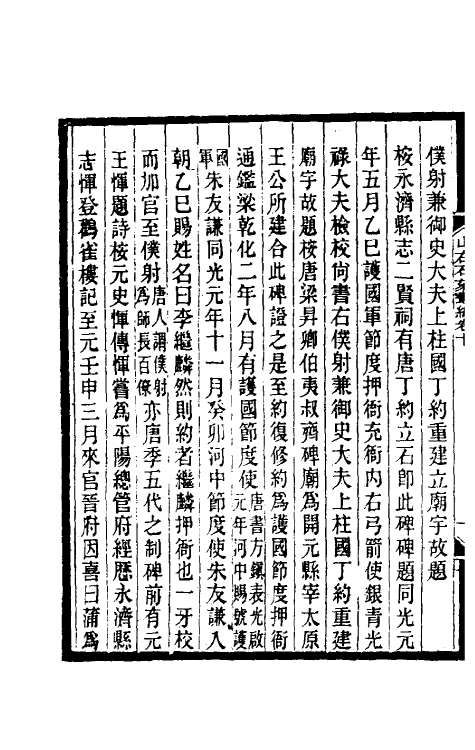 僕射兼御史大夫上柱國丁約重建立廟宇故題
桉永濟縣志二賢祠有唐丁約立石卽此碑碑題同光元
年五月乙巳護國軍節度押衙充衙內右弓箭使銀青光
祿大夫檢校尙書右僕射兼御史大夫上柱國丁約重建
廟字故題桉唐梁昇卿伯夷叔齊碑廟爲開元縣宰太原
王公所建合此碑證之是至約復修約爲護國節度押衙
通鑑梁乾化二年八月有護國節度使唐書方鎭表光啟元年河中賜號護
國軍朱友謙同光元年十一月癸卯河中節度使朱友謙入
朝乙巳賜姓名曰李繼麟然則約者繼麟押衙也一牙校
而加官至僕射唐人謂僕射爲師長百僚亦唐季五代之制碑前有元
王惲題詩桉元史惲傳惲嘗爲平陽總管府經歷永濟縣
志惲登鸛雀樓記至元壬申三月來官晉府因喜曰蒲爲